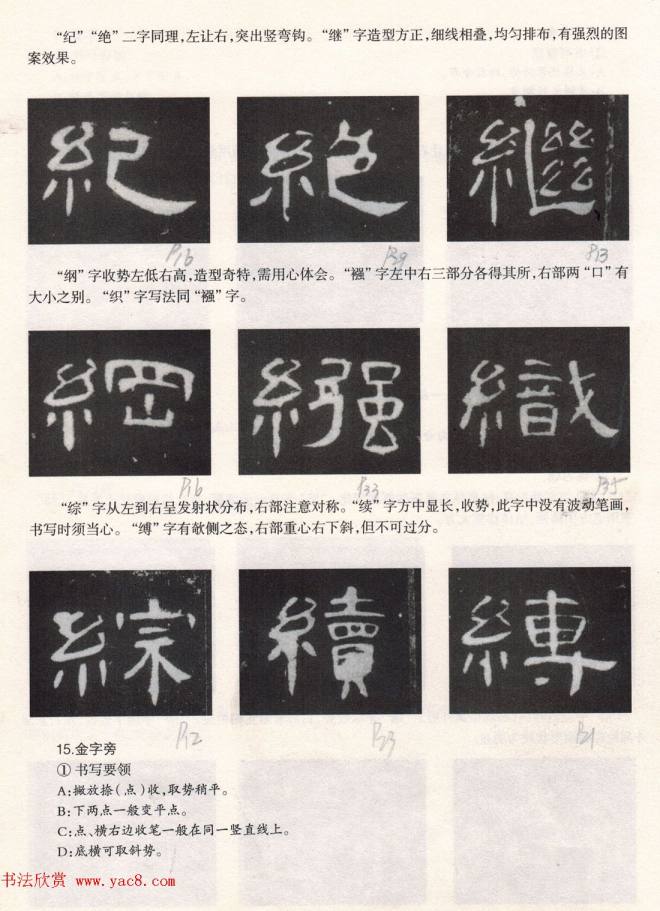 “纪”“绝”二字同理,左让右,突出竖弯钩。“继”字造型方正,细线相叠,均匀排布,有强烈的图
案效果。
紀 絶 繼
P16 P39 P13
“纲”字收势左低右高,造型奇特,需用心体会。“襁”字左中右三部分各得其所,右部两“口”有
大小之别。“织”字写法同“襁”字。
綱 繈 織
P16 P33 P35
“综”字从左到右呈发射状分布,右部注意对称。“续”字方中显长,收势,此字中没有波动笔画,
书写时须当心。“缚”字有欹侧之态,右部重心右下斜,但不可过分。
綜 續 縛
P12 P23
15.金字旁
①书写要领
A:撇放捺(点)收,取势稍平。
B:下两点一般变平点。
C:点、横右边收笔一般在同一竖直线上。
D:底横可取斜势。
书法欣赏 www.yac8.com